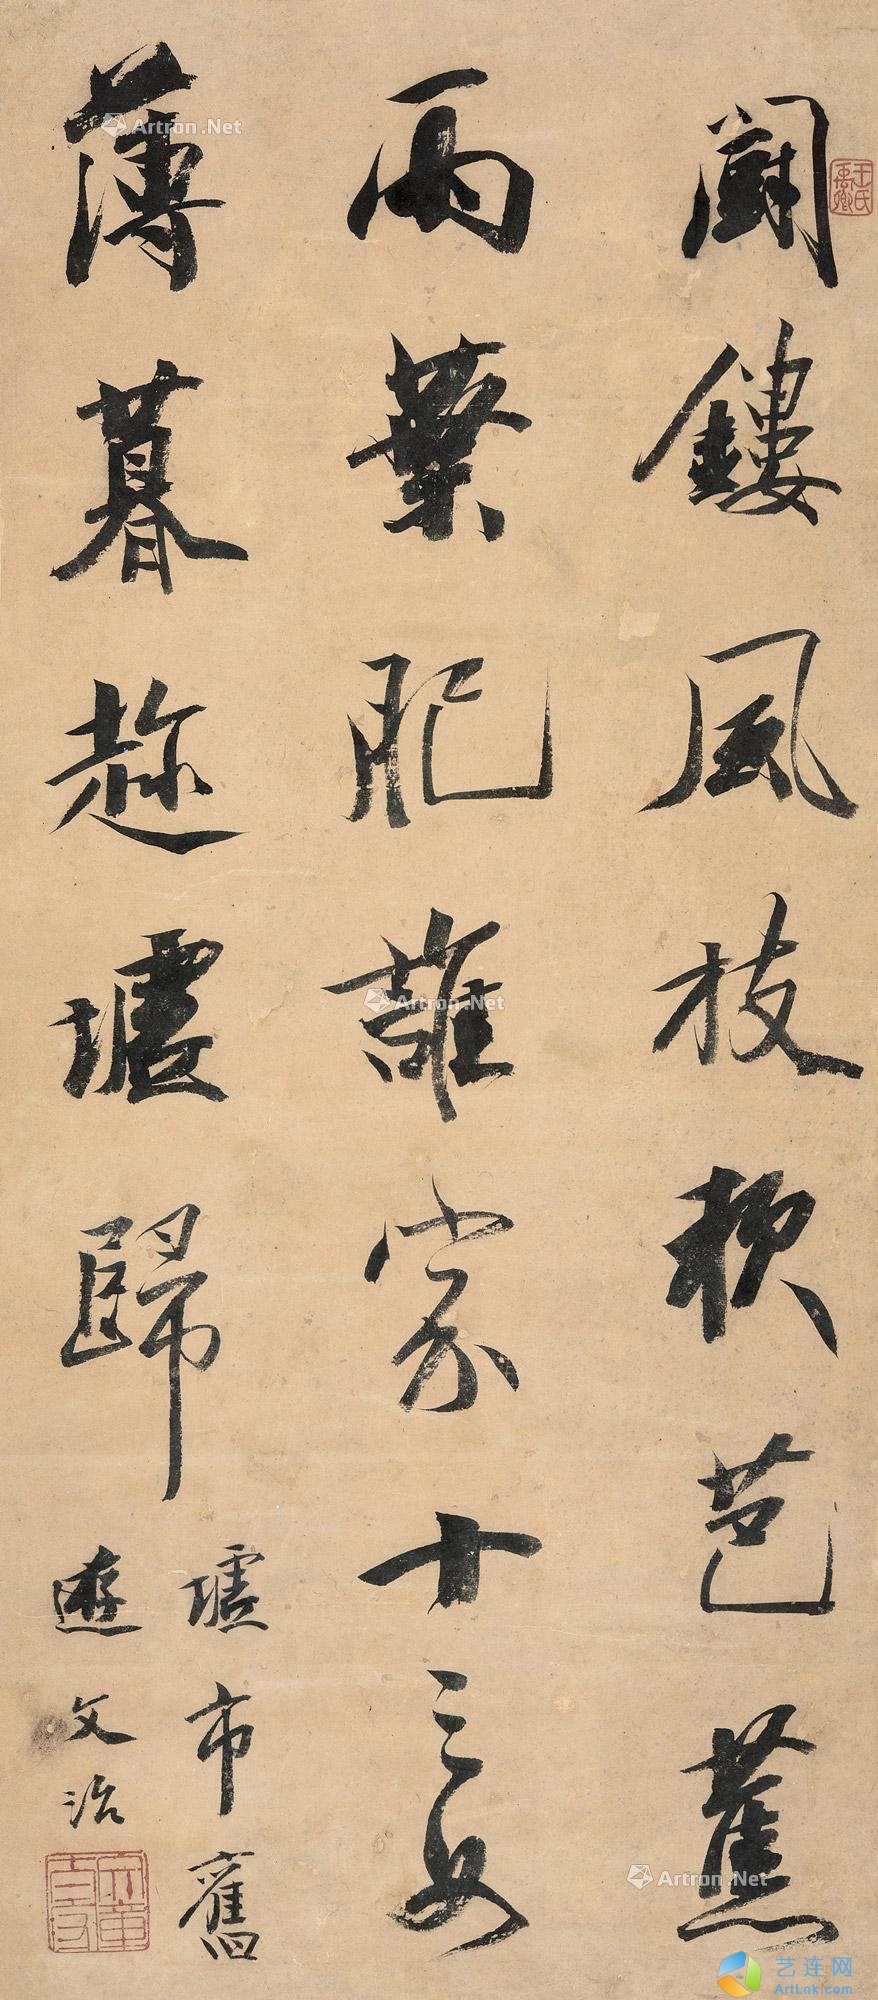 王氏禹卿
鏤風枝軟芭蕉
雨葉肥誰家十三女
薄暮趂墟歸
墟市舊
遊文治
文章太守
Artron.Net
Artron.Net
Artron.Net
艺连网
ArtLnk.com